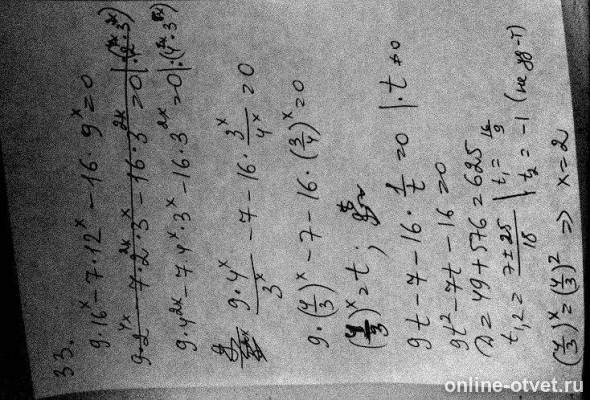 33.
9·16^x − 7·12^x − 16·9^x = 0
9·4^{2x} − 7·4^x·3^x − 16·3^{2x} = 0 | : (4^x·3^x)
9·4^x/3^x − 7 − 16·3^x/4^x = 0
9·(4/3)^x − 7 − 16·(3/4)^x = 0
(4/3)^x = t;
9t − 7 − 16·1/t = 0 | ·t ≠ 0
9t² − 7t − 16 = 0
Д = 49 + 576 = 625
t_{1,2} = (7 ± 25)/18 | t_1 = 16/9
t_2 = −1 (не уд-т)
(4/3)^x = (4/3)^2 ⇒ x = 2
online-otvet.ru